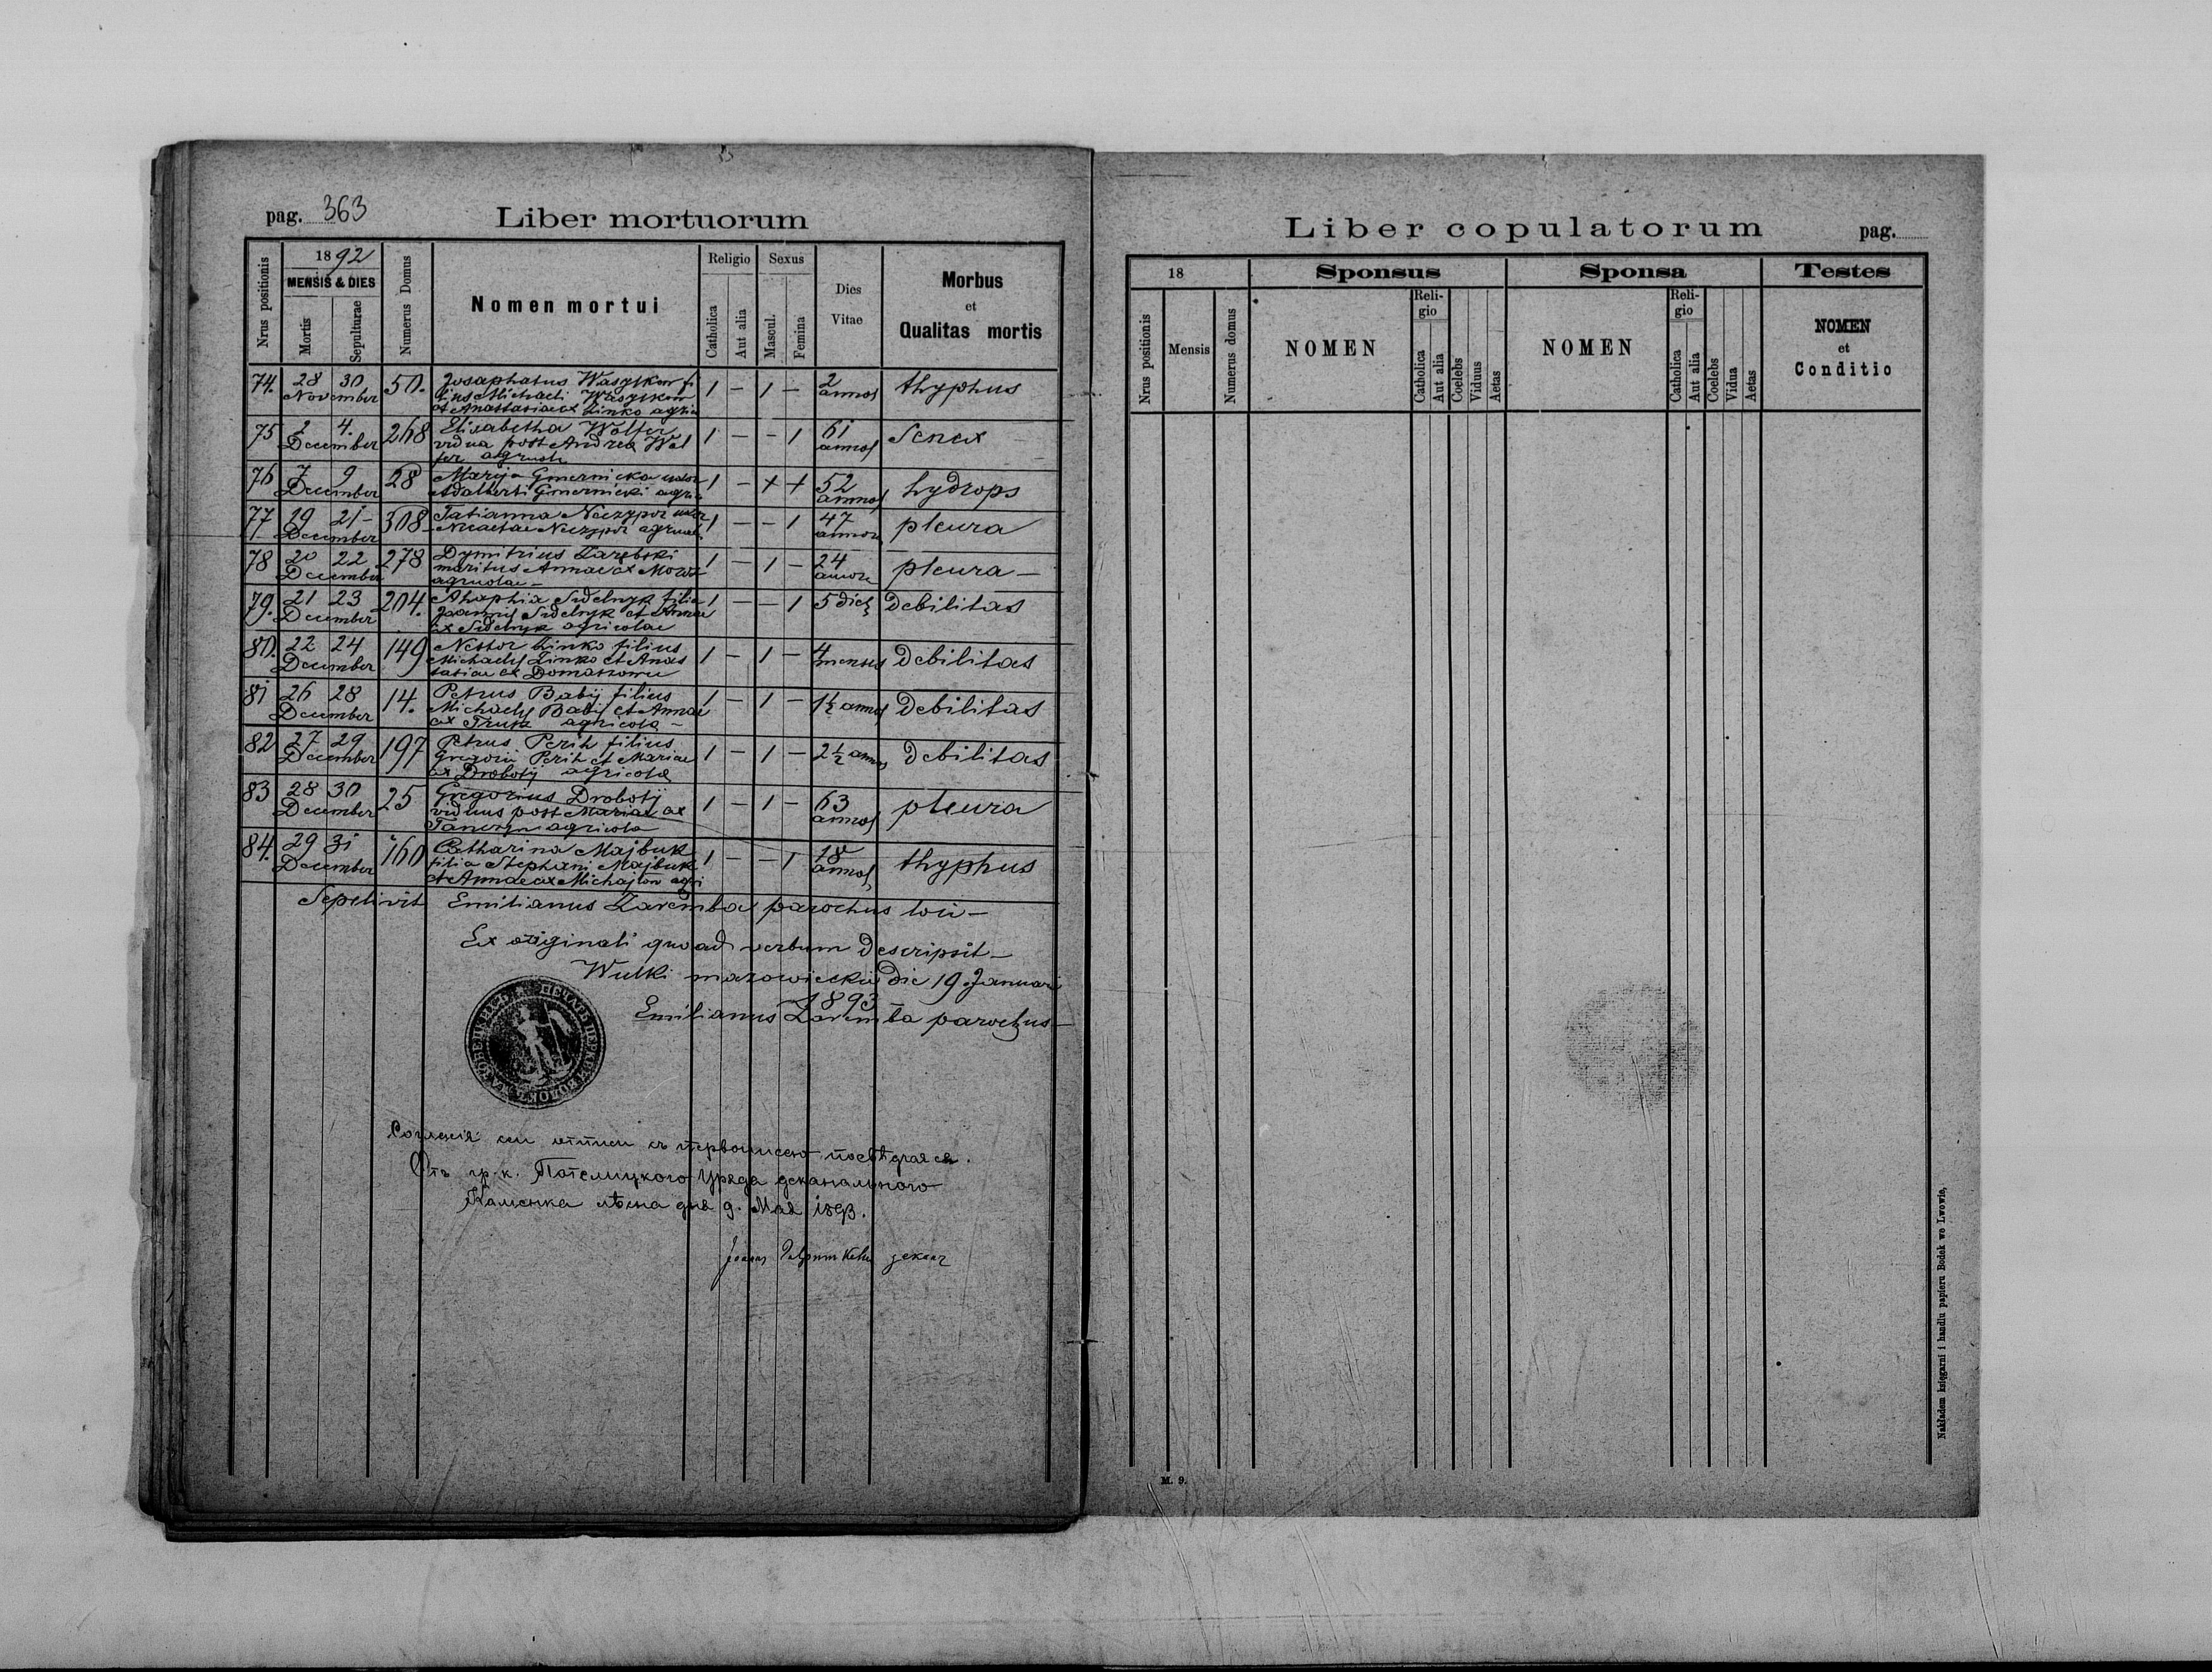 pag. 363
Liber mortuorum
Nrus positionis
1892
MENSIS & DIES
Mortis
Sepulturae
Numerus Domus
Nomen mortui
Religio
Catholica
Aut alia
Sexus
Mascul.
Femina
Dies
Vitae
Morbus
et
Qualitas mortis
74. 28 30 November 50. Josaphatus Wasylkow fi 1 – 1 – 2 annos thyphus
lius Michaeli Wasylkow
et Anastasiae ex Zinko agric
75 2 4. December 268 Elisabetha Wolter 1 – – 1 61 annos Senex
vidua post Andrea Wol
ter agricola
76 7 9 December 28 Marija Gmernicka uxor 1 – + + 52 annos hydrops
Adalberti Gmernicki agric
77 19 21 – December 308 Tatianna Neczypor uxor 1 – – 1 47 annos pleura
Nicaetae Neczypor agricol
78 20 22 December 278 Dymitrius Zarębski 1 – 1 – 24 pleura –
maritus Annae ex
agricolae –
79. 21 23 December 204. Ahaphia Sidelnyk filia 1 – – 1 5 dies Debilitas
Joannis Sidelnyk et Annae
ex Sidelnyk agricolae
80. 22 24 December 149 Nestor Zinko filius 1 – 1 – 4 menses Debilitas
Michaely Zinko et Anas
tasiae ex
81 26 28 December 14. Petrus Babij filius 1 – 1 – 1½ annos Debilitas
Michaely Babij et Annae
ex agricola –
82 27 29 December 197 Petrus Perih filius 1 – 1 – 2½ annos Debilitas
Gregorii Perih et Mariae
ex Drobotij agricola
83 28 30 December 25 Gregorius Drobotij 1 – 1 – 63 annos pleura
viduus post Mariae ex
agricola
84. 29 31 December 160 Catharina Majbuk 1 – – 1 18 annos thyphus
filia Stephani Majbuk
et Annae ex Michajlow agri
Sepelivit Emilianus Zaremba parochus loci –
Ex originali quoad verbum descripsit –
Wulki mazowieckii die 19 Januari
1893 –
Emilianus Zaremba parochus –
Отъ гр. к. Потелицкого Уряда деканального
Каменка лѣсна дня 9. Мая 1893.
декан
Liber copulatorum
pag.
Nrus positionis
18
Mensis
Numerus domus
Sponsus
NOMEN
Religio
Catholica
Aut alia
Coelebs
Viduus
Aetas
Sponsa
NOMEN
Religio
Catholica
Aut alia
Coelebs
Vidua
Aetas
Testes
NOMEN
et
Conditio
M. 9.
Nakładem księgarni i handlu papieru Bodek we Lwowie,